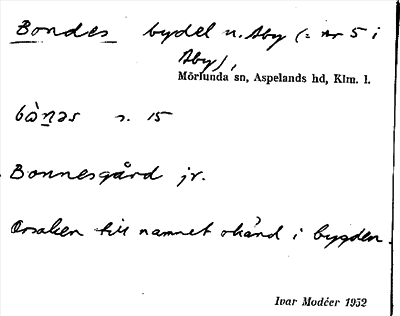 Bondes bydel u. Åby (= nr 5 i
Åby),
Mörlunda sn, Aspelands hd, Klm. l.
bànəs s. 15
Bonnesgård jr.
Orsaken till namnet okänd i bygden.
Ivar Modéer 1952